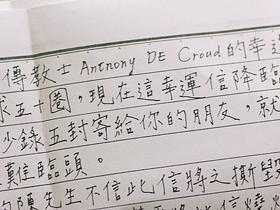 傳教士 Antnony DE Croud的幸運
球五十圈，現在這幸運信降臨
少錄五封寄給你的朋友，就
難臨頭。
陳先生不信此信將之撕毀